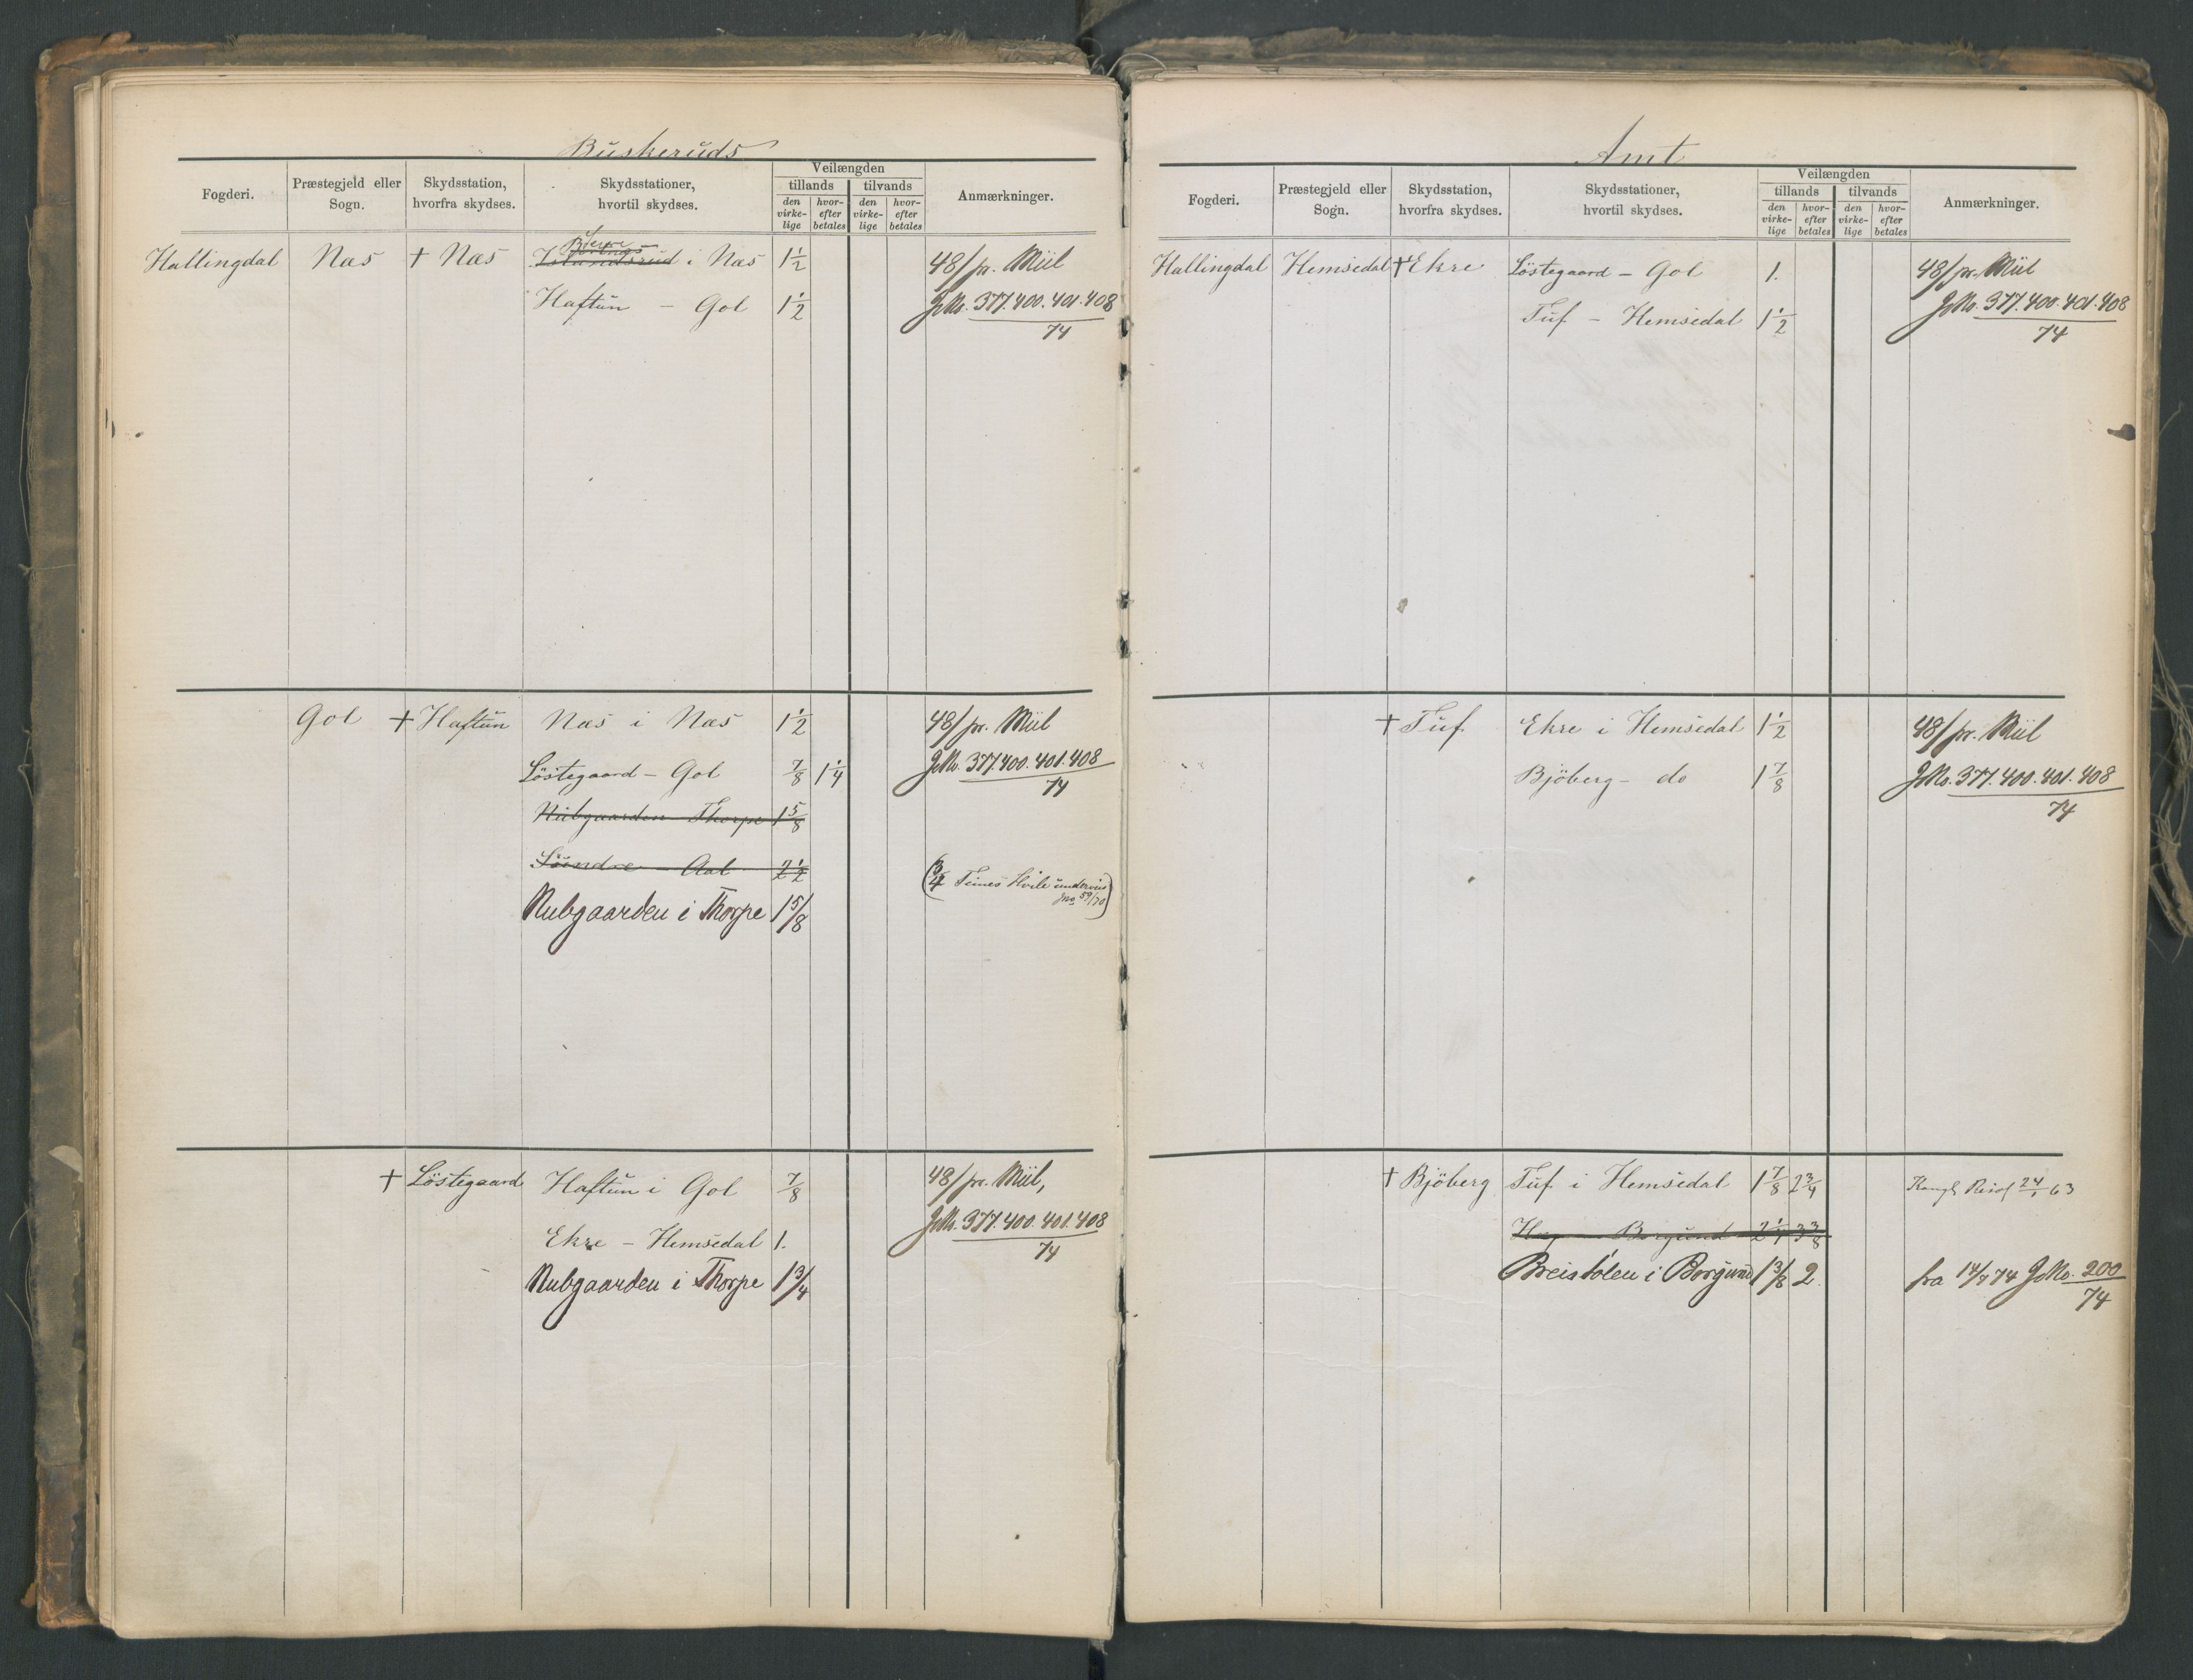 Buskeruds
Veilængden
Fogderi. Præstegjeld eller Sogn. Skydsstation, hvorfra skydses. Skydsstationer, hvortil skydses. tillands tilvands Anmærkninger.
den virke-lige hvor-efter betales den virke-lige hvor-efter betales
Hallingdal Næs + Næs i Næs 1 1/2 48/pr. Miil
Haftun - Gol 1 1/2 JNo. 377.400.401.408
74
Gol + Haftun Næs i Næs 1 1/2 48/pr. Miil
Löstegaard - Gol 7/8 1 1/4 JNo. 377.400.401.408
74
Nubgaarden Thorpe 1 5/8
Sundre - Aal 2 1/2
(3/4 Times Hvile underveis
Jno 59/70)
Nubgaarden i Thorpe 1 5/8
+ Löstegaard Haftun i Gol 7/8 48/pr. Miil,
Ekre - Hemsedal 1. JNo. 377.400.401.408
74
Nubgaarden i Thorpe 1 3/4
Amt
Veilængden
Fogderi. Præstegjeld eller Sogn. Skydsstation, hvorfra skydses. Skydsstationer, hvortil skydses. tillands tilvands Anmærkninger.
den virke-lige hvor-efter betales den virke-lige hvor-efter betales
Hallingdal Hemsedal + Ekre Löstegaard - Gol 1. 48/pr. Miil
Tuf - Hemsedal 1 1/2 JNo. 377.400.401.408
74
+ Tuf Ekre i Hemsedal 1 1/2 48/pr. Miil
Bjöberg - do 1 7/8 JNo. 377.400.401.408
74
+ Bjöberg Tuf i Hemsedal 1 7/8 2 3/4 Kongl. Resol 24/1 63
Borgund 2 1/4 3 3/8
Breistölen i Borgund 1 3/8 2. fra 14/7 74 JNo. 200
74